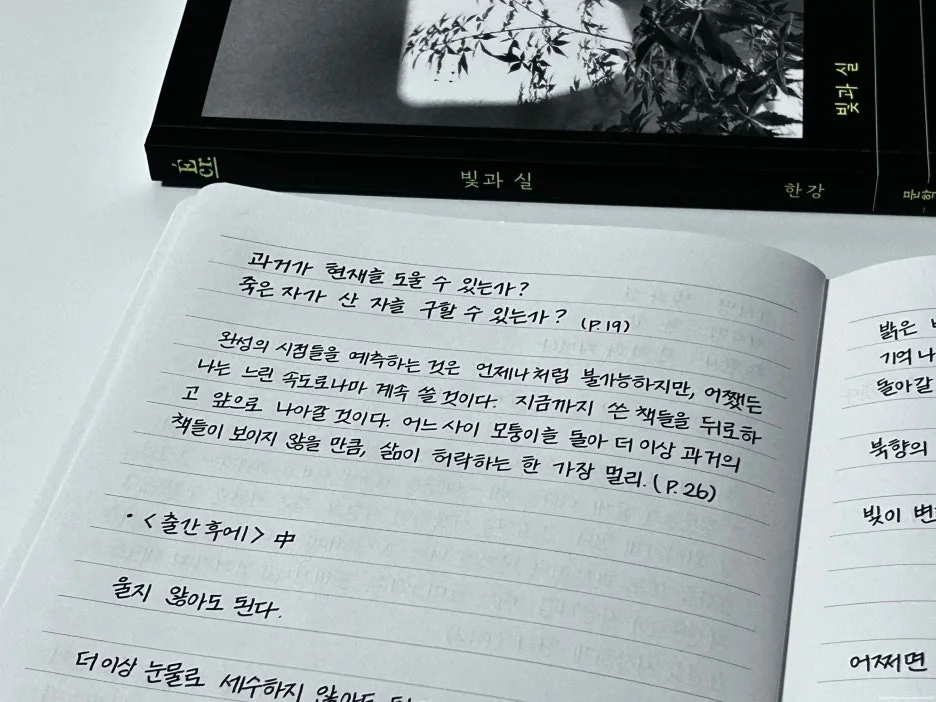 빛과 실
Écr.
빛과 실
한강
문학
과거가 현재를 도울 수 있는가?
죽은 자가 산 자를 구할 수 있는가? (P.19)
완성의 시점들을 예측하는 것은 언제나처럼 불가능하지만, 어쨌든
나는 느린 속도로나마 계속 쓸 것이다. 지금까지 쓴 책들을 뒤로하
고 앞으로 나아갈 것이다. 어느 사이 모퉁이를 돌아 더 이상 과거의
책들이 보이지 않을 만큼, 삶이 허락하는 한 가장 멀리. (P.26)
• <출간 후에> 中
울지 않아도 된다.
더 이상 눈물로 세수하지 않아도
밝은
기의 나
돌아갈
북향의
빛이
어쩌면